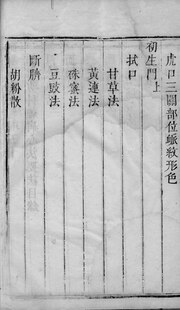 虎口三關部位脈紋形色
初生門上
拭口
甘草法
黃連法
硃蜜法
豆豉法
斷臍
胡粉散